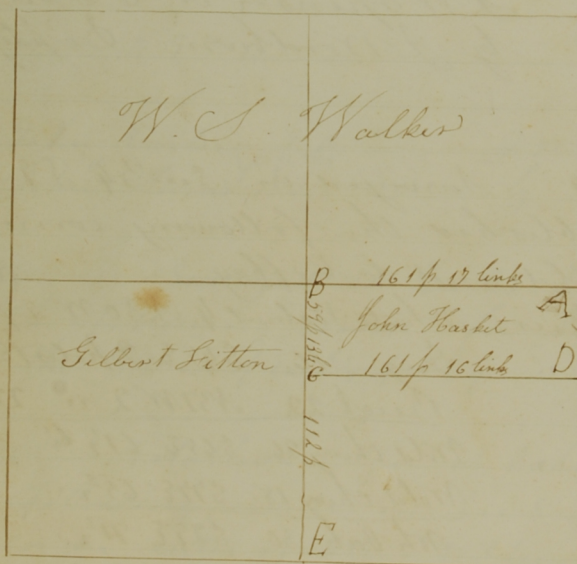 W. S. Walker
B 161 p 17 links
A
John Hasket
Gilbert Fitton
C 161 p 16 links D
112 p
E